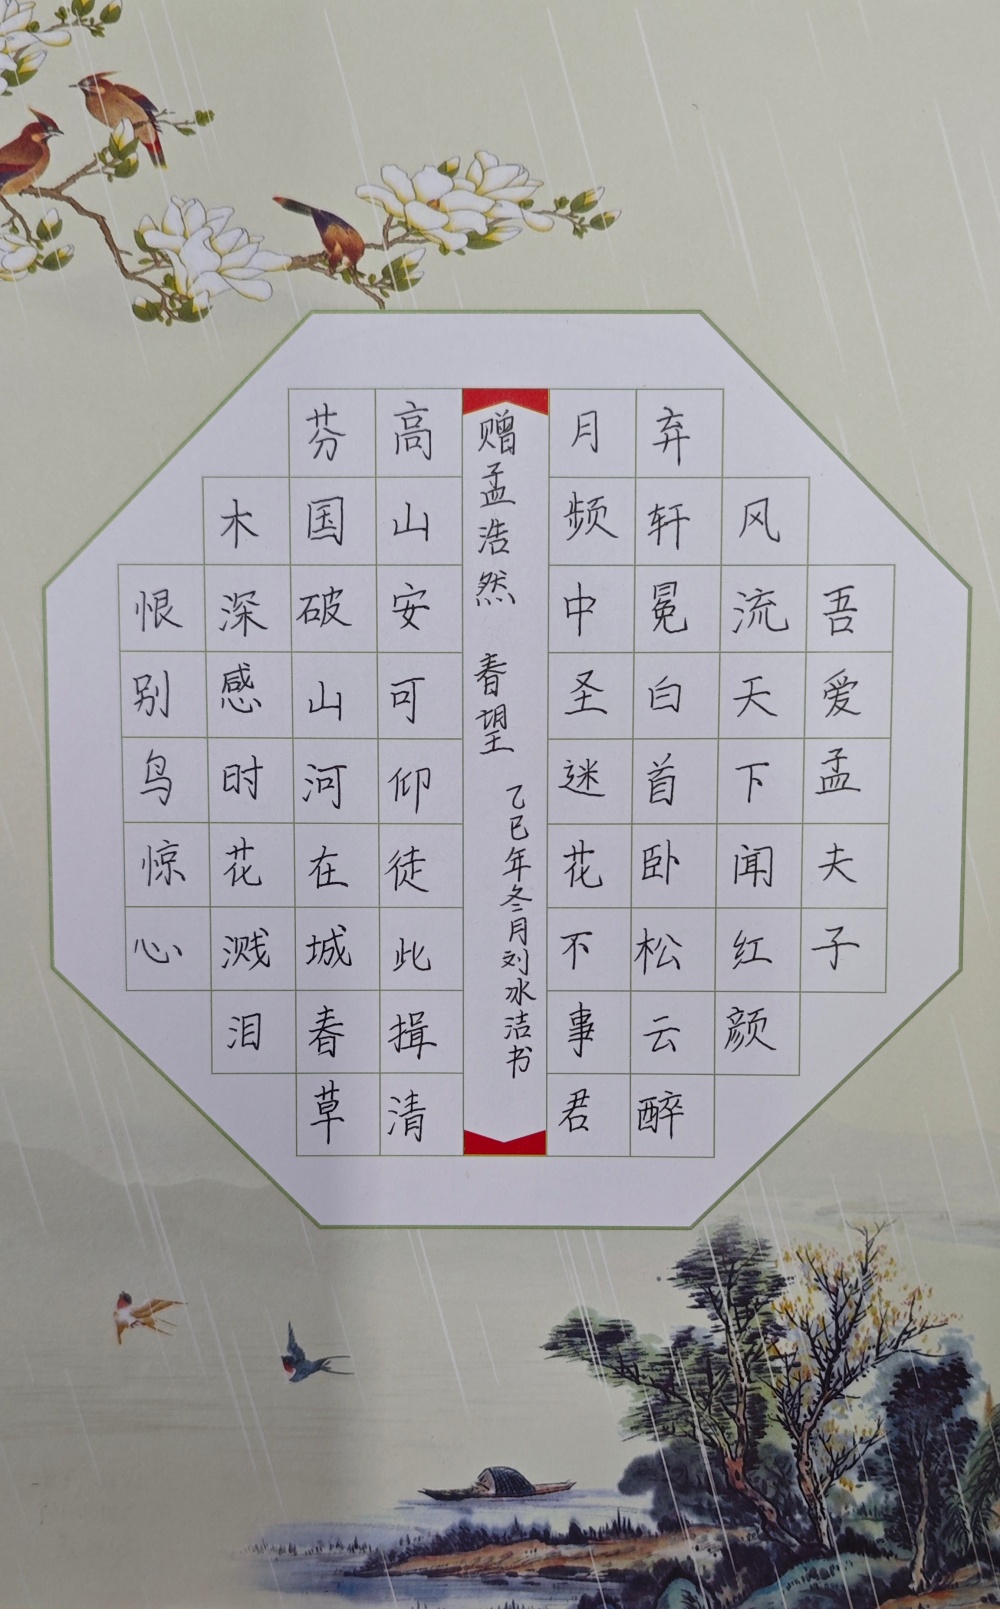 吾爱孟夫子
风流天下闻红颜
弃轩冕白首卧松云醉
月频中圣迷花不事君
赠孟浩然 春望
乙巳年冬月刘冰洁书
高山安可仰徒此揖清
芬国破山河在城春草
木深感时花溅泪
恨别鸟惊心